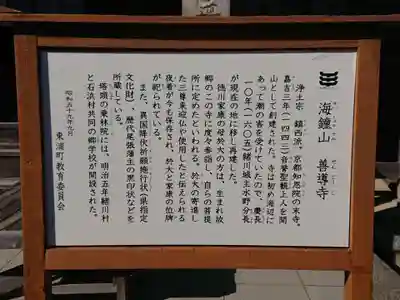 海鐘山 善導寺
浄土宗 鎮西派、京都知恩院の末寺。
嘉吉三年(一四四三)音誉聖観上人を開
山として創建された。寺は初め海辺に
あって潮の害を受けていたので、慶長
一〇年(一六〇五)緒川城主水野分長
が現在の地に移し再建した。
徳川家康の母於大の方は、生まれ故
郷のこの寺に度々参詣し、自らの菩提
所に定めたといわれる。於大の寄進し
た三尊来迎仏や使用したと伝えられる
夜着が今も保存され、於大と家康の位牌
が祀られている。
また、異国降伏祈願施行状(県指定
文化財)、歴代尾張藩主の黒印状などを
所蔵している。
塔頭の乗林院には、明治五年緒川村
と石浜村共同の郷学校が開設された。
昭和五十九年九月
東浦町教育委員会